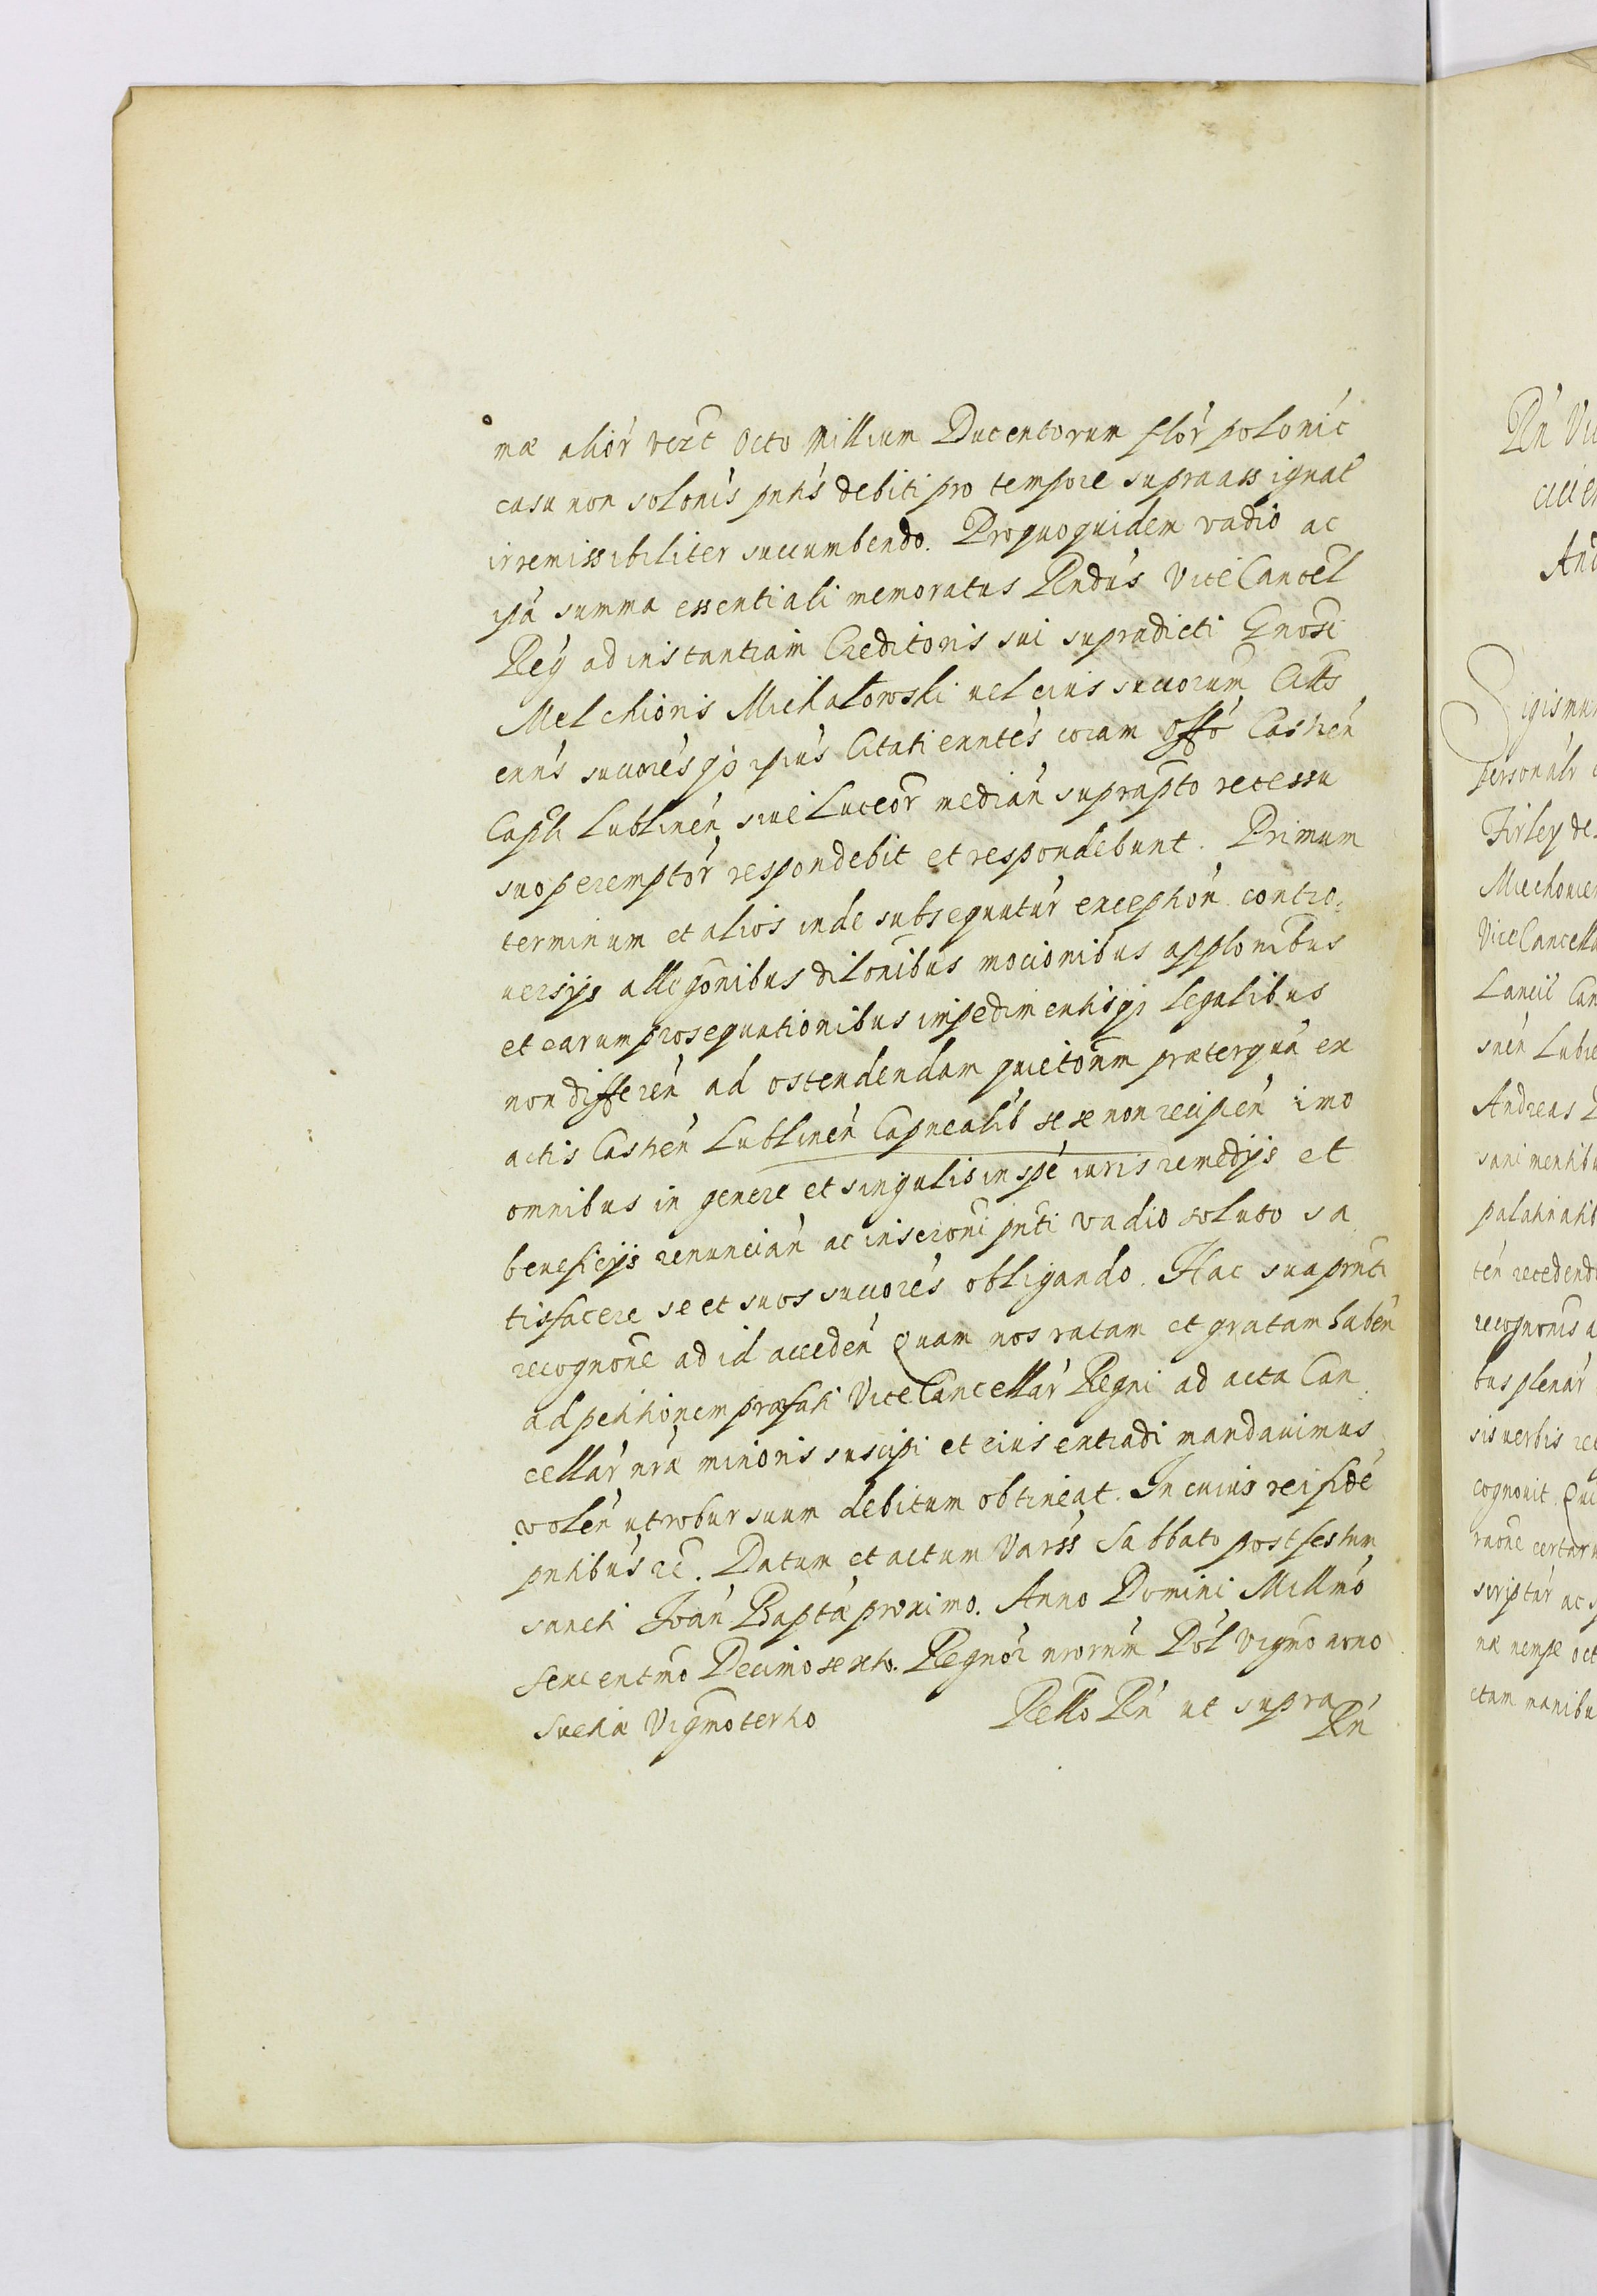 mæ alior vero Octo Millium Ducentorum flor polonic
casu non solonis pntis debiti pro tempore supra assignat
irremissibiliter succumbendo. Pro quo quidem vadio ac
ipa summa essentiali memoratus Rndus Vice Cancel
Reg ad instantiam Creditoris sui supradicti Gnosi
Melchioris Michałowski uel eius succorum Citts
eruns succores qo ipius Citati eruntes coram Offo Castren
Capli Lublinen siue Luceor median suprapto recessu
suo peremptor respondebit et respondebunt. Primum
terminum et alios inde subsequutur exception contro
uersijs allegonibus dilonibus mocionibus applonibus
et earum prosequutionibus impedimentis qz legalibus
non differen ad ostendendam quietonum præterqua ex
actis Castren Lublinen Capnealib sese non recipen imo
omnibus in genere et singulis in spe iuris remedijs et
beneficijs renuncian ac inscroni pnti vadio soluto sa
tisfacere se et suos succores obligando. Hac sua pnti
recognone ad id acceden Quam nos ratam et gratam haben
ad petitionem præfati Vice Cancellar Regni ad acta Can
cellar nræ minoris suscipi et eius extradi mandauimus
volen ut robur suum debitum obtineat. In cuius rei fide
pntibus &c. Datum et actum Varss Sabbato post festum
sancti Joan Bapta proximo. Anno Domini Millmo
Sexcentmo Decimo sexto. Regnor nrorum Pol vigmo nono
Sueciæ Vigmo tertio Rello Rn ut supra
Rn
Rn Vi
Sigismun
personalr
Firley de
Miechouien
Vice Cancella
Lancic Can
Andreas
sani mentibu
palatinatib
ten recedend
recognonis a
bus plenar
sis verbis re
cognouit Qui
raone certar
scriptar ac
næ nempe oct
etam manibu